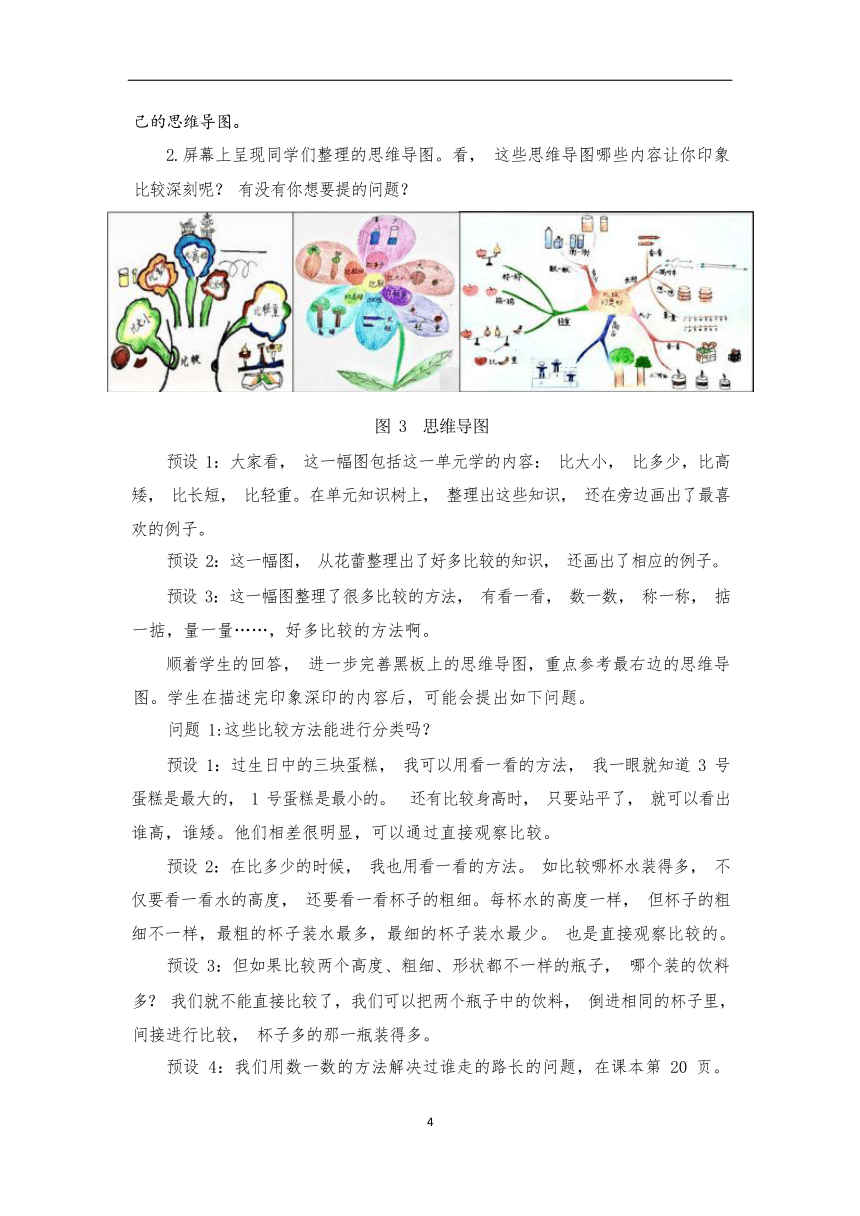 己的思维导图。
2.屏幕上呈现同学们整理的思维导图。看， 这些思维导图哪些内容让你印象
比较深刻呢？ 有没有你想要提的问题？
比高矮
比大小
比轻重
比较
比多少
比大小
比较
比高矮
比长短
轻
重
长短
大小
轻重
高矮
看一看
数一数
图 3 思维导图
预设 1：大家看， 这一幅图包括这一单元学的内容： 比大小， 比多少，比高
矮， 比长短， 比轻重。在单元知识树上， 整理出这些知识， 还在旁边画出了最喜
欢的例子。
预设 2：这一幅图， 从花蕾整理出了好多比较的知识， 还画出了相应的例子。
预设 3：这一幅图整理了很多比较的方法， 有看一看， 数一数， 称一称， 掂
一掂，量一量……，好多比较的方法啊。
顺着学生的回答， 进一步完善黑板上的思维导图，重点参考最右边的思维导
图。学生在描述完印象深印的内容后，可能会提出如下问题。
问题 1:这些比较方法能进行分类吗？
预设 1：过生日中的三块蛋糕， 我可以用看一看的方法， 我一眼就知道 3 号
蛋糕是最大的， 1 号蛋糕是最小的。 还有比较身高时， 只要站平了， 就可以看出
谁高，谁矮。他们相差很明显，可以通过直接观察比较。
预设 2：在比多少的时候， 我也用看一看的方法。 如比较哪杯水装得多， 不
仅要看一看水的高度， 还要看一看杯子的粗细。每杯水的高度一样， 但杯子的粗
细不一样，最粗的杯子装水最多，最细的杯子装水最少。 也是直接观察比较的。
预设 3：但如果比较两个高度、粗细、形状都不一样的瓶子， 哪个装的饮料
多？ 我们就不能直接比较了，我们可以把两个瓶子中的饮料， 倒进相同的杯子里，
间接进行比较， 杯子多的那一瓶装得多。
预设 4：我们用数一数的方法解决过谁走的路长的问题，在课本第 20 页。
4